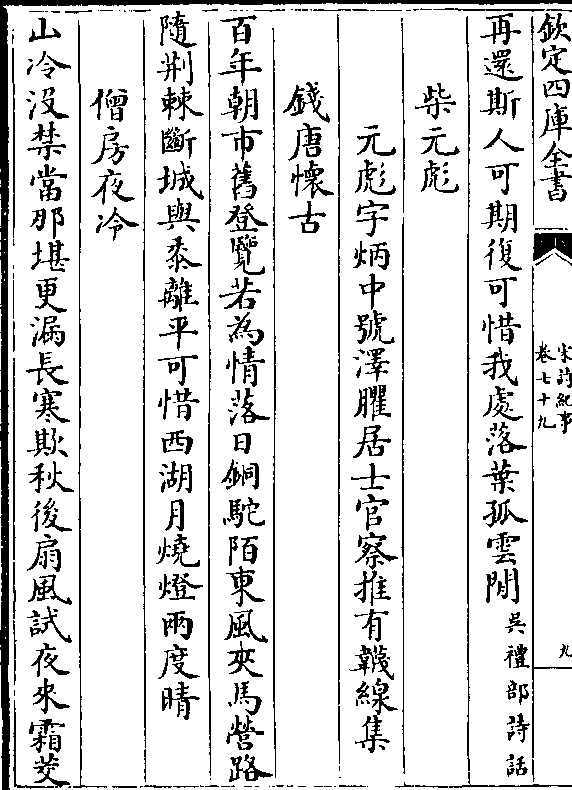 欽定四庫全書
宋詩紀事
卷七十九
九
再還斯人可期復可惜我處落葉孤雲閒吳禮部詩話
柴元彪
元彪字炳中號澤臞居士官察推有韈線集
錢唐懷古
百年朝市舊登覽若為情落日銅駝陌東風夾馬營路
隨荆棘斷城與黍離平可惜西湖月燒燈兩度晴
僧房夜冷
山冷沒禁當那堪更漏長寒欺秋後扇風試夜來霜茭